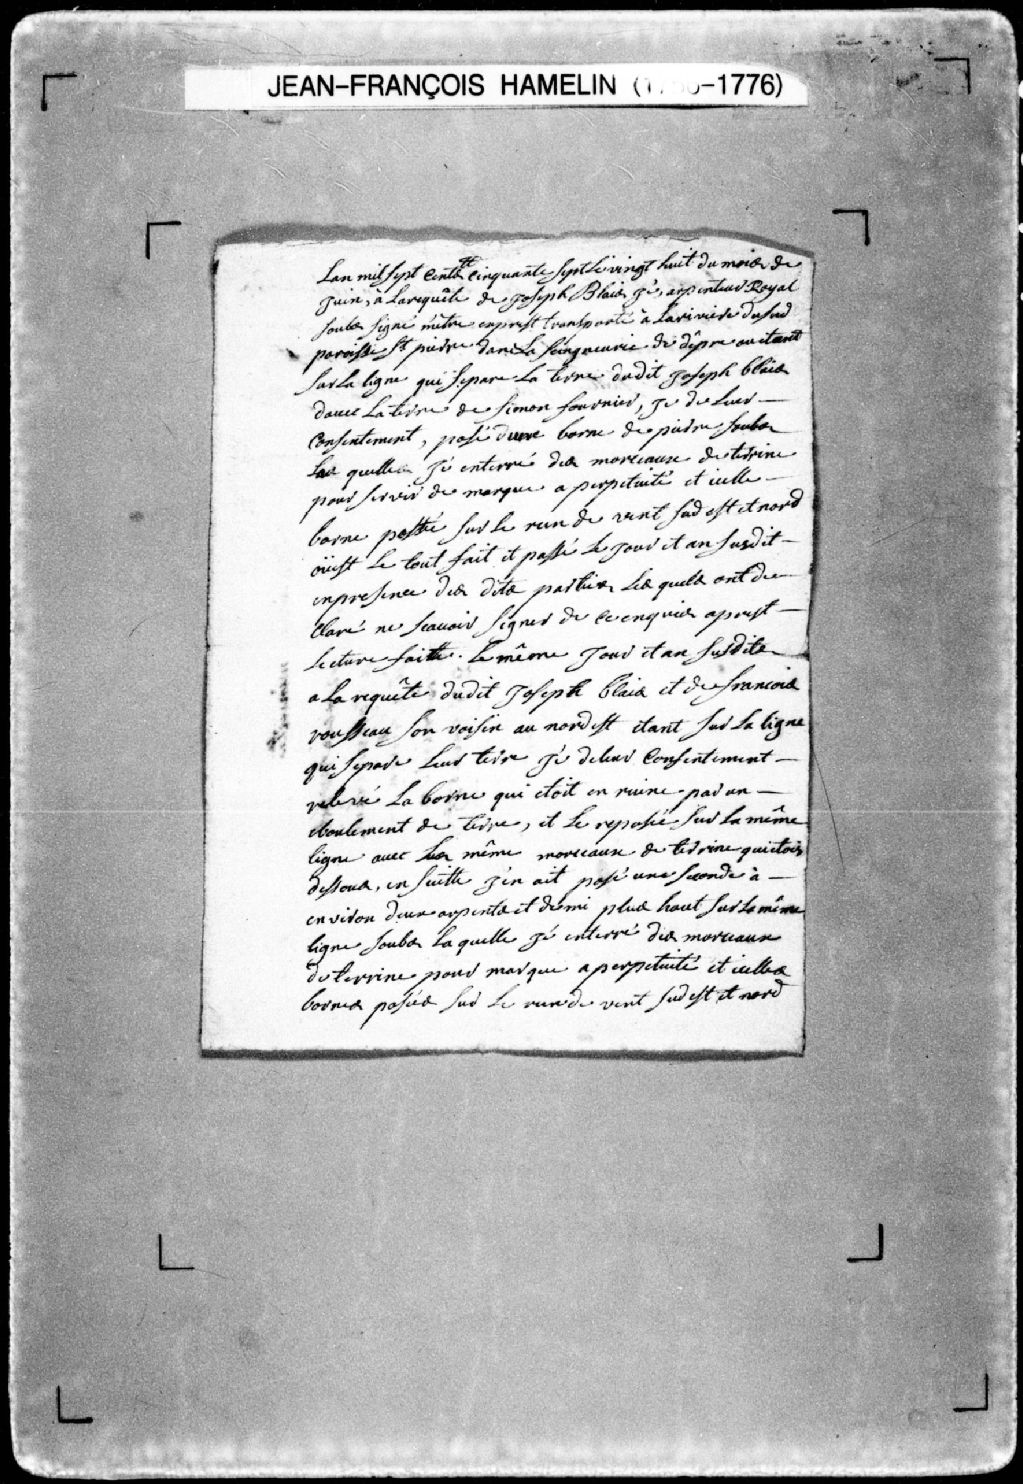 JEAN-FRANÇOIS HAMELIN (17 -1776)
Lan mil sept Cents cinquante sept Le vingt huit du mois de
Juin, à Larequête de Joseph Blais Jé, arpenteur Royal
soubs signé m'être exprest transporté à La riviere du sud
paroisse St pierre dans La seigneurie de d'Epine ou étant
sur La ligne qui separe La terre dudit Joseph blais
davec La terre de simon fournier, Jé de Leur —
Consentement, posé dune borne de pierre soubs
Les quelles Jé enterré des morceaux de terrine
pour servir de marque a perpetuité et icelle —
borne posée sur Le run de vent sud est et nord
oüest Le tout fait et passé Le Jour et an susdit —
en presence des dites parties Les quels ont de —
Claré ne scauoir signer de ce enquis aprest —
Lecture faitte. Le même Jour et an susdits
a La requête dudit Joseph blais et de francois
rousseau son voisin au nordest étant sur La ligne
qui separe Leur terre Jé deleur Consentement —
relevé La borne qui étoit en ruine par un —
éboulement de terre, et Le reposée sur La même
ligne avec Les même morceaux de terrine qui étois
dessous, en suitte J'en ait posé une seconde à —
environ deux arpents et demi plus haut sur La même
ligne soubs La quelle Jé enterré des morceaux
de terrine pour marque a perpetuité et icelles
bornes posées sur Le run de vent sud est et nord